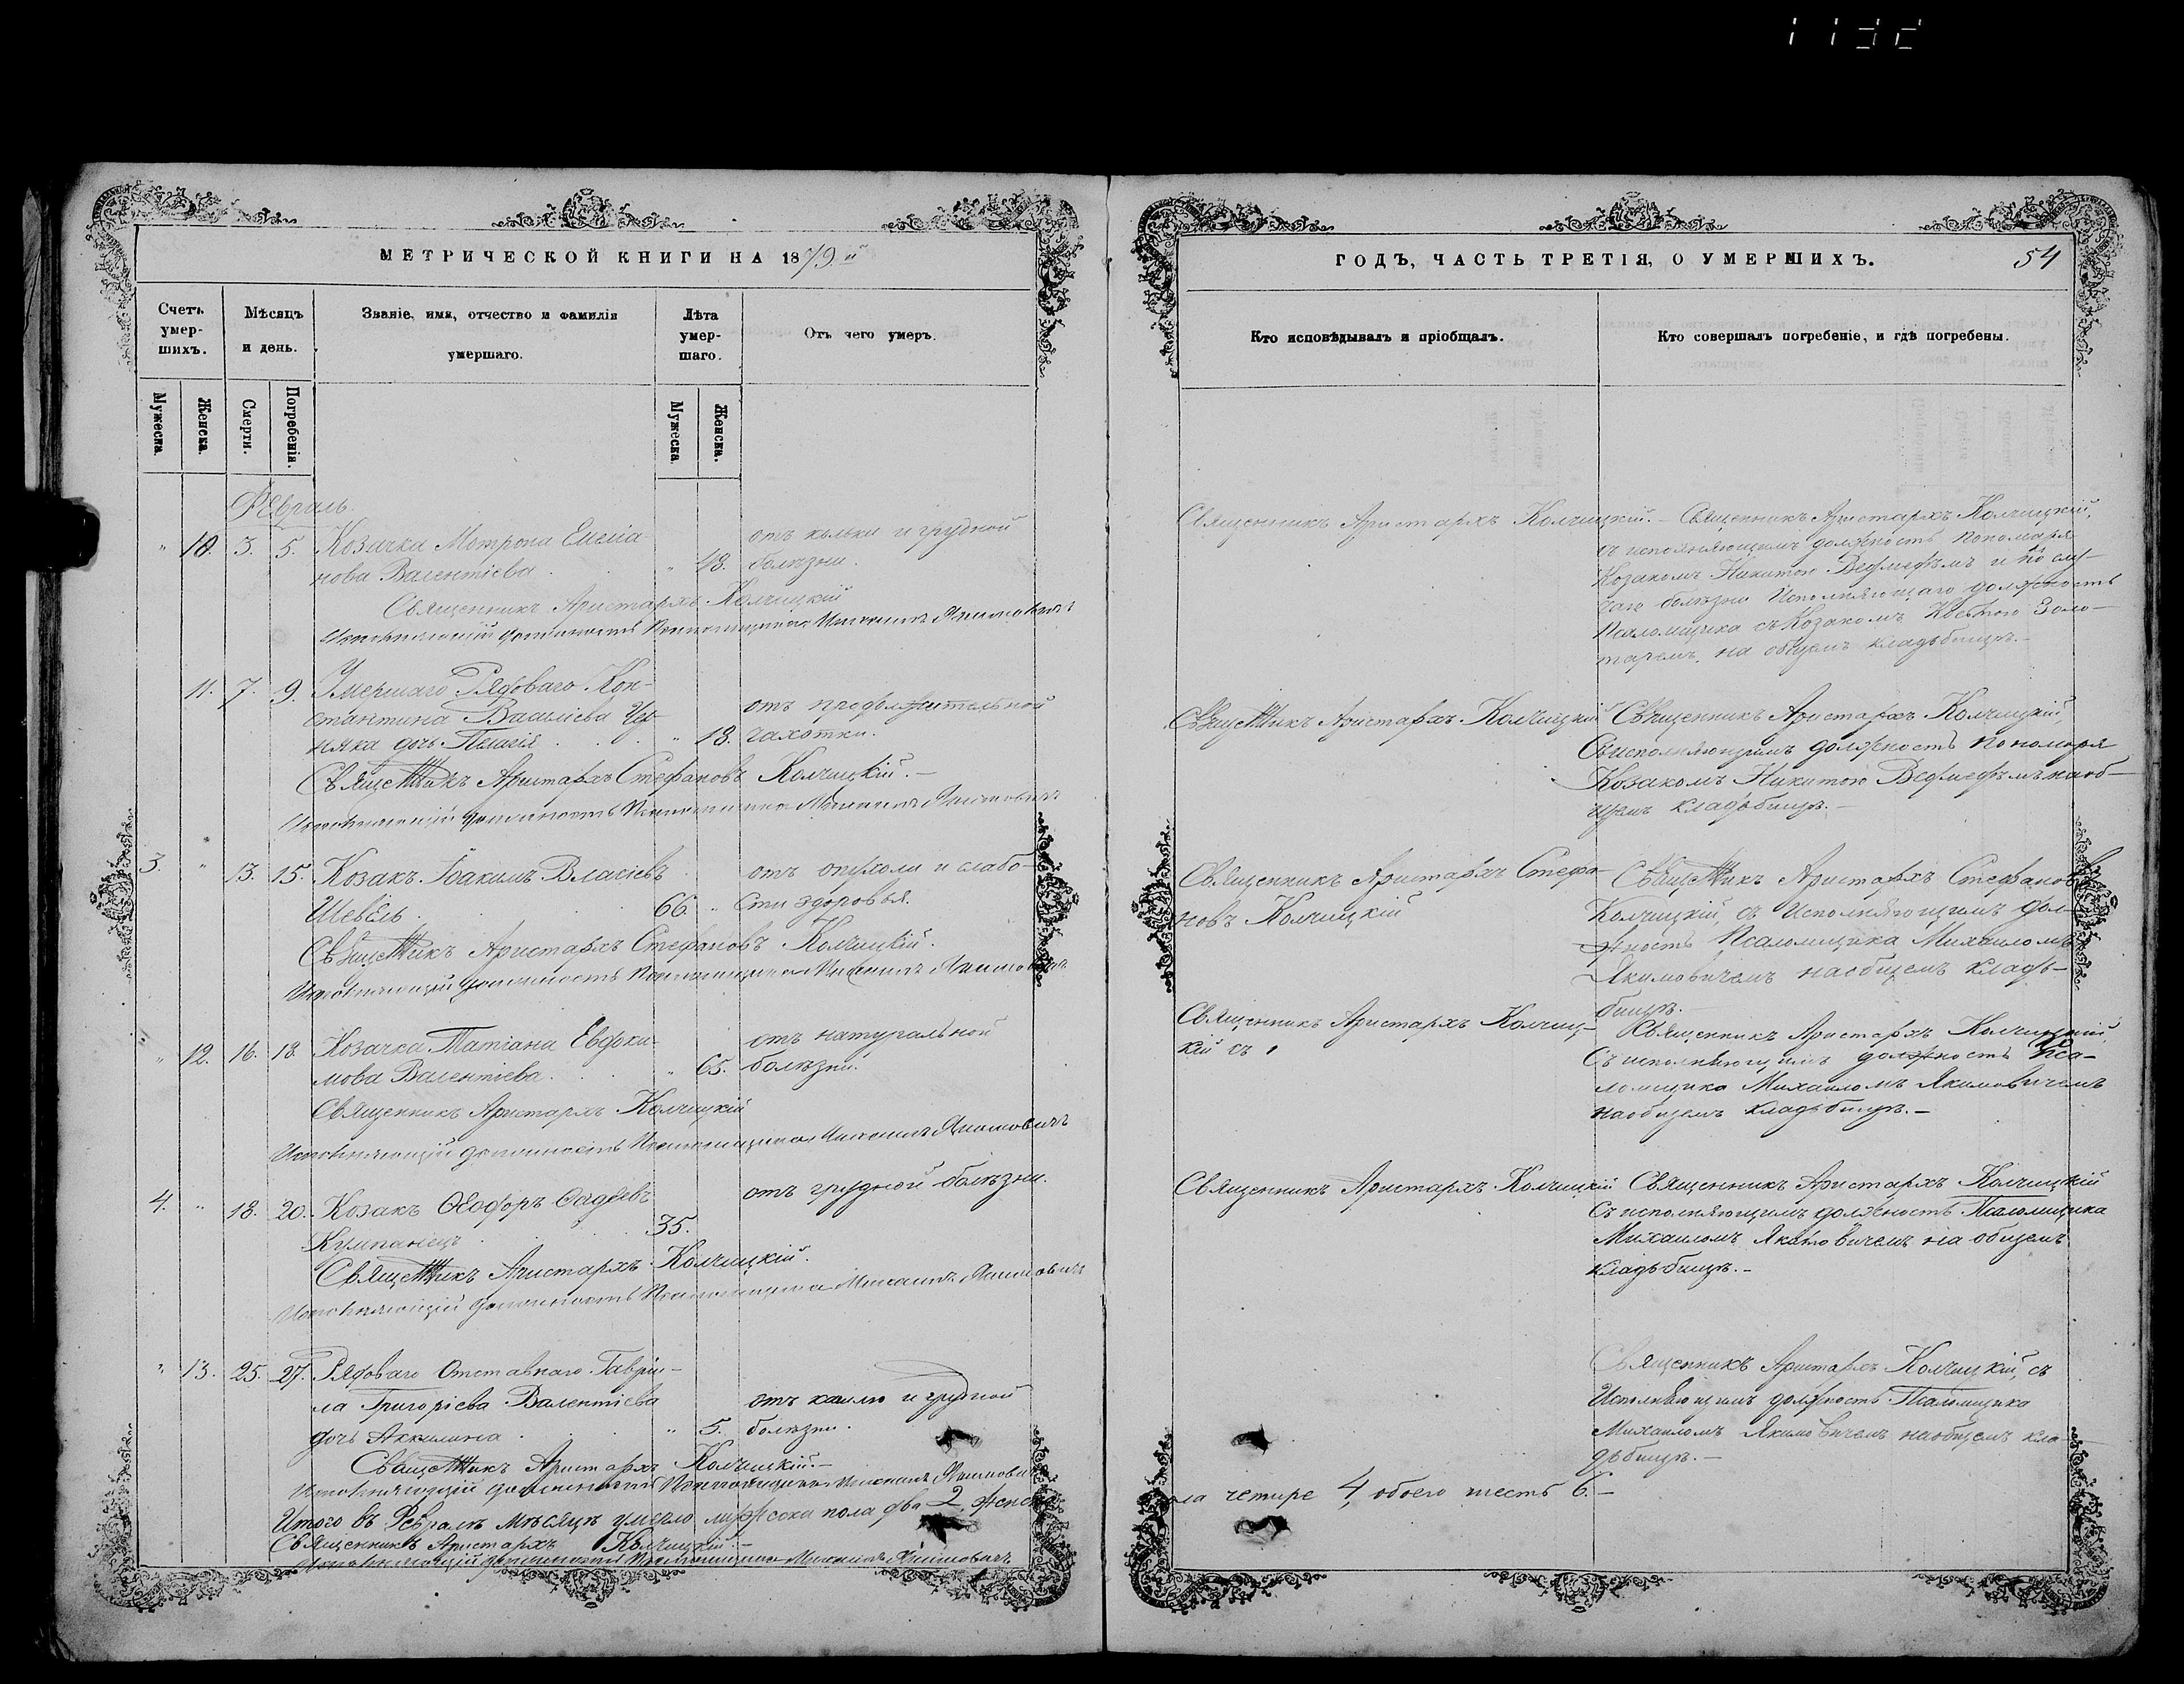 МЕТРИЧЕСКОЙ КНИГИ НА 1879й
Счетъ умер-шихъ.
Мѣсяцъ и день.
Званіе, имя, отчество и фамилія умершаго.
Лѣта умер-шаго.
Отъ чего умеръ.
Мужеска.
Женска.
Смерти.
Погребенія.
Мужеска.
Женска.
Февраль.
" 10. 3. 5. Козачка Мотрона Емеліа-
нова Валентіева . " 48.
отъ кольки и грудной
болѣзни.
Священникъ Аристархъ Колчицкій
Исполняющій должность Псаломщика Михаилъ Якимовичъ
11. 7. 9. Умершаго Рядоваго Кон-
стантина Василіева Чер-
няка дочь Пелагія . . . " 18.
отъ продолжительной
чахотки.
Священникъ Аристархъ Стефановъ Колчицкій.-
Исполняющій должность Псаломщика Михаилъ Якимовичъ
3. " 13. 15. Козакъ Іоакимъ Власіевъ
Шевель . . . 66. "
отъ опухоли и слабо-
сти здоровья.
Священникъ Аристархъ Стефановъ Колчицкій.
Исполняющій должность Псаломщика Михаилъ Якимовичъ
" 12. 16. 18. Козачка Татіана Евфки-
мова Валентіева . . " 65.
отъ натуральной
болѣзни.
Священникъ Аристархъ Колчицкій
Исполняющій должность Псаломщика Михаилъ Якимовичъ
4. " 18. 20. Козакъ Ѳеодоръ Ѳадѣевъ
Кумпанецъ . . . 35.
отъ грудной болѣзни.
Священникъ Аристархъ Колчицкій.
Исполняющій должность Псаломщика Михаилъ Якимовичъ
" 13. 25. 27. Рядоваго Отставнаго Гавріи-
ла Григоріева Валентіева
дочь Акилина . . . " 5.
отъ кашлю и грудной
болѣзни.
Священникъ Аристархъ Колчицкій.-
Исполняющій должность Псаломщика Михаилъ Якимовичъ
Итого въ Февралѣ мѣсяцѣ умерло мужеска пола два 2, женска
Священникъ Аристархъ Колчицкій.-
Исполняющій должность Псаломщика Михаилъ Якимовичъ
ГОДЪ, ЧАСТЬ ТРЕТІЯ, О УМЕРШИХЪ.
54
Кто исповѣдывалъ и пріобщалъ.
Кто совершалъ погребеніе, и гдѣ погребены.
Священникъ Аристархъ Колчицкій.-
Священникъ Аристархъ Колчицкій,
съ исполняющимъ должность пономаря
Козакомъ Никитою Ведмедѣмъ и по слу-
чаю болѣзни Исполняющаго должность
Псаломщика съ Козакомъ Костою Золо-
таремъ, на общемъ кладбищѣ.-
Священникъ Аристархъ Колчицкій
Священникъ Аристархъ Колчицкій,
Съисполняющимъ должность пономаря
Козакомъ Никитою Ведмедѣмъ наоб-
щемъ кладбищѣ.-
Священникъ Аристархъ Стефа-
новъ Колчицкій
Священникъ Аристархъ Стефановъ
Колчицкій, съ Исполняющимъ дол-
жность Псаломщика Михаиломъ
Якимовичемъ наобщемъ кладь-
бищѣ.-
Священникъ Аристархъ Колчиц-
кій съ
Священникъ Аристархъ Колчицкій,
Съ исполняющимъ должность Пса-
ломщика Михаиломъ Якимовичемъ
наобщемъ кладьбищѣ.-
Священникъ Аристархъ Колчицкій
Священникъ Аристархъ Колчицкій
Съ исполняющимъ должность Псаломщика
Михаиломъ Якимовичемъ на общемъ
кладьбищѣ.-
Священникъ Аристархъ Колчицкій, съ
Исполняющимъ должность Псаломщика
Михаиломъ Якимовичемъ наобщемъ кла-
дьбищѣ.-
ла четире 4, обоего шесть 6.-